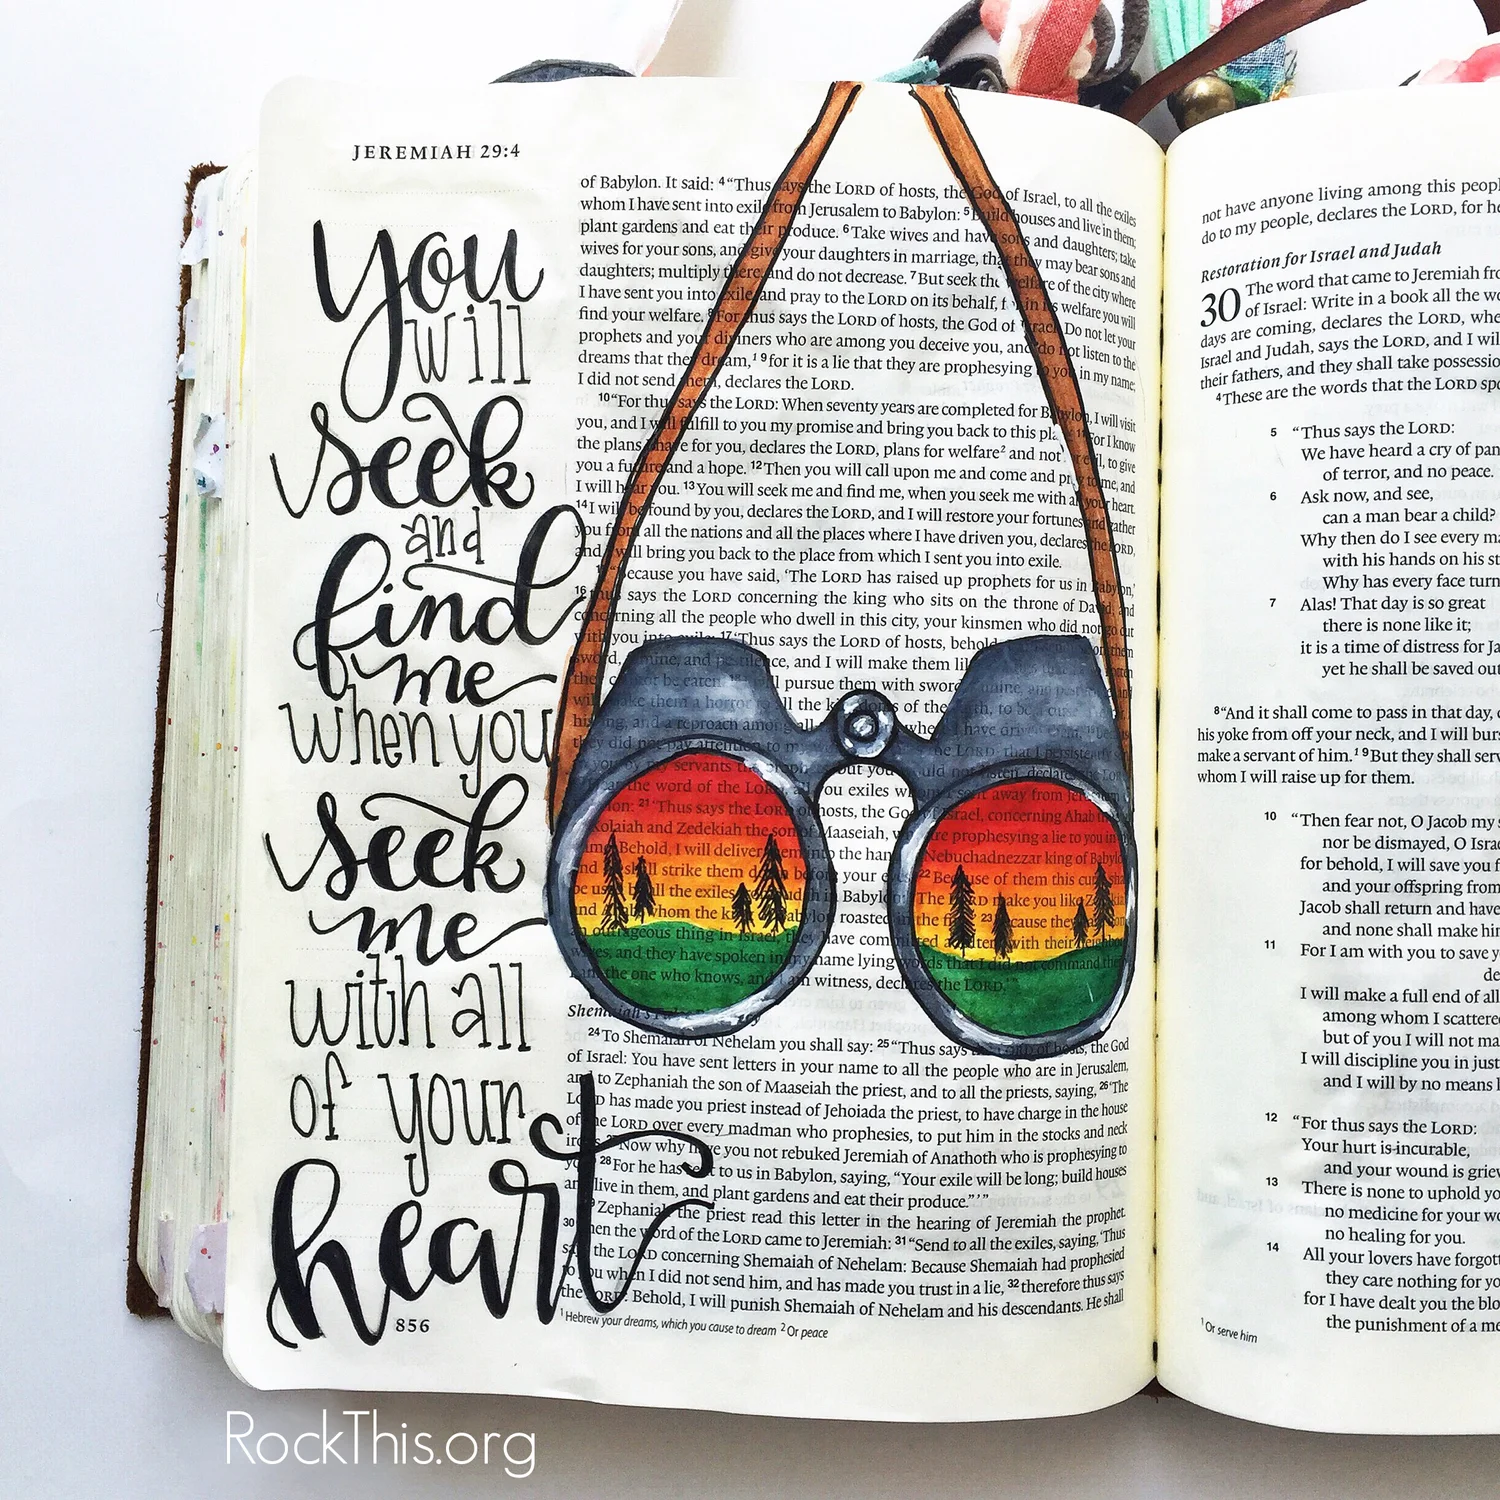 JEREMIAH 29:4
You
will
seek
and
find
me
when you
seek
me
with all
of your
heart
856
of Babylon. It said: 4“Thus says the LORD of hosts, the God of Israel, to all the exiles
whom I have sent into exile from Jerusalem to Babylon: 5Build houses and live in them;
plant gardens and eat their produce. 6Take wives and have sons and daughters; take
wives for your sons, and give your daughters in marriage, that they may bear sons and
daughters; multiply there, and do not decrease. 7But seek the welfare of the city where
I have sent you into exile, and pray to the LORD on its behalf, f in its welfare you will
find your welfare. 8For thus says the LORD of hosts, the God of Israel: Do not let your
prophets and your diviners who are among you deceive you, and do not listen to the
dreams that they dream,1 9for it is a lie that they are prophesying to you in my name;
I did not send them, declares the LORD.
10“For thus says the LORD: When seventy years are completed for Babylon, I will visit
you, and I will fulfill to you my promise and bring you back to this pla 11For I know
the plans I have for you, declares the LORD, plans for welfare2 and not evil, to give
you a future and a hope. 12Then you will call upon me and come and pray to me, and
I will hear you. 13You will seek me and find me, when you seek me with all your heart.
14I will be found by you, declares the LORD, and I will restore your fortunes and gather
you from all the nations and all the places where I have driven you, declares the LORD,
and I will bring you back to the place from which I sent you into exile.
“Because you have said, ‘The LORD has raised up prophets for us in Babylon,’
16thus says the LORD concerning the king who sits on the throne of David, and
concerning all the people who dwell in this city, your kinsmen who did not go out
with you into exile: 17‘Thus says the LORD of hosts, behold
sword, famine, and pestilence, and I will make them lik rotten
they cannot be eaten. 18I will pursue them with sword, famine, and
will make them a horror to all the kingdoms of the earth, to be a
hissing, and a reproach among all where I have driven
they did not pay attention to my the LORD, that I persistently
to you by my servants the proph but you would not listen, declares the LORD.
the word of the LORD, all you exiles whom I sent away from Jerusalem
21‘Thus says the LORD of hosts, the God of Israel, concerning Ahab the
Kolaiah and Zedekiah the son of Maaseiah, who are prophesying a lie to you in
name: Behold, I will deliver them into the hand Nebuchadnezzar king of Babylon
and he shall strike them down before your eyes. 22Because of them this curse shall
be used by all the exiles Judah in Babylon: “The LORD make you like Zedekiah
and Ahab, whom the king of Babylon roasted in the fire,” 23because they have done
an outrageous thing in Israel, they have committed adultery with their neighbors’
wives, and they have spoken in my name lying words that I did not command them.
I am the one who knows, and I am witness, declares the LORD.’”
Shemaiah’s
24To Shemaiah of Nehelam you shall say: 25“Thus says LORD of hosts, the God
of Israel: You have sent letters in your name to all the people who are in Jerusalem,
and to Zephaniah the son of Maaseiah the priest, and to all the priests, saying, 26‘The
LORD has made you priest instead of Jehoiada the priest, to have charge in the house
of the LORD over every madman who prophesies, to put him in the stocks and neck
irons. 27Now why have you not rebuked Jeremiah of Anathoth who is prophesying to
you? 28For he has sent to us in Babylon, saying, “Your exile will be long; build houses
and live in them, and plant gardens and eat their produce.”’”
29Zephaniah the priest read this letter in the hearing of Jeremiah the prophet.
30Then the word of the LORD came to Jeremiah: 31“Send to all the exiles, saying, ‘Thus
says the LORD concerning Shemaiah of Nehelam: Because Shemaiah had prophesied
to you when I did not send him, and has made you trust in a lie, 32therefore thus says
the LORD: Behold, I will punish Shemaiah of Nehelam and his descendants. He shall
1 Hebrew your dreams, which you cause to dream 2 Or peace
not have anyone living among this peopl
do to my people, declares the LORD, for he
Restoration for Israel and Judah
30 The word that came to Jeremiah fro
of Israel: Write in a book all the wo
days are coming, declares the LORD, whe
Israel and Judah, says the LORD, and I wil
their fathers, and they shall take possessio
4These are the words that the LORD spo
5 “Thus says the LORD:
We have heard a cry of pan
of terror, and no peace.
6 Ask now, and see,
can a man bear a child?
Why then do I see every ma
with his hands on his st
Why has every face turn
7 Alas! That day is so great
there is none like it;
it is a time of distress for Ja
yet he shall be saved out
8“And it shall come to pass in that day,
his yoke from off your neck, and I will burs
make a servant of him.1 9But they shall serv
whom I will raise up for them.
10 “Then fear not, O Jacob my s
nor be dismayed, O Israe
for behold, I will save you f
and your offspring from
Jacob shall return and have
and none shall make him
11 For I am with you to save y
de
I will make a full end of all
among whom I scattere
but of you I will not ma
I will discipline you in just
and I will by no means l
12 “For thus says the LORD:
Your hurt is incurable,
and your wound is griev
13 There is none to uphold yo
no medicine for your wo
no healing for you.
14 All your lovers have forgott
they care nothing for yo
for I have dealt you the blo
the punishment of a me
1 Or serve him
RockThis.org